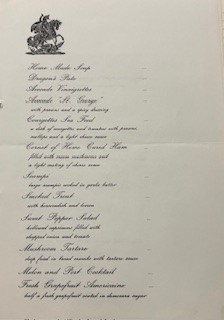 Home Made Soup
Dragon's Pate
Avocado Vinaigrette
Avocado "St. George"
with prawns and a spicy dressing
Courgettes Sea Food
a dish of courgettes and tomatoes with prawns
scallops and a light cheese sauce
Cornet of Home Cured Ham
filled with cream
a light coating of cheese sauce
Scampi
large scampi cooked in garlic butter
Smoked Trout
with horseradish and lemon
Sweet Pepper Salad
hollowed capsicums filled with
chopped onion and tomato
Mushroom Tartare
deep fried in bread crumbs with tartare sauce
Melon and Port Cocktail
Fresh Grapefruit Americaine
half a fresh grapefruit coated in demerara sugar